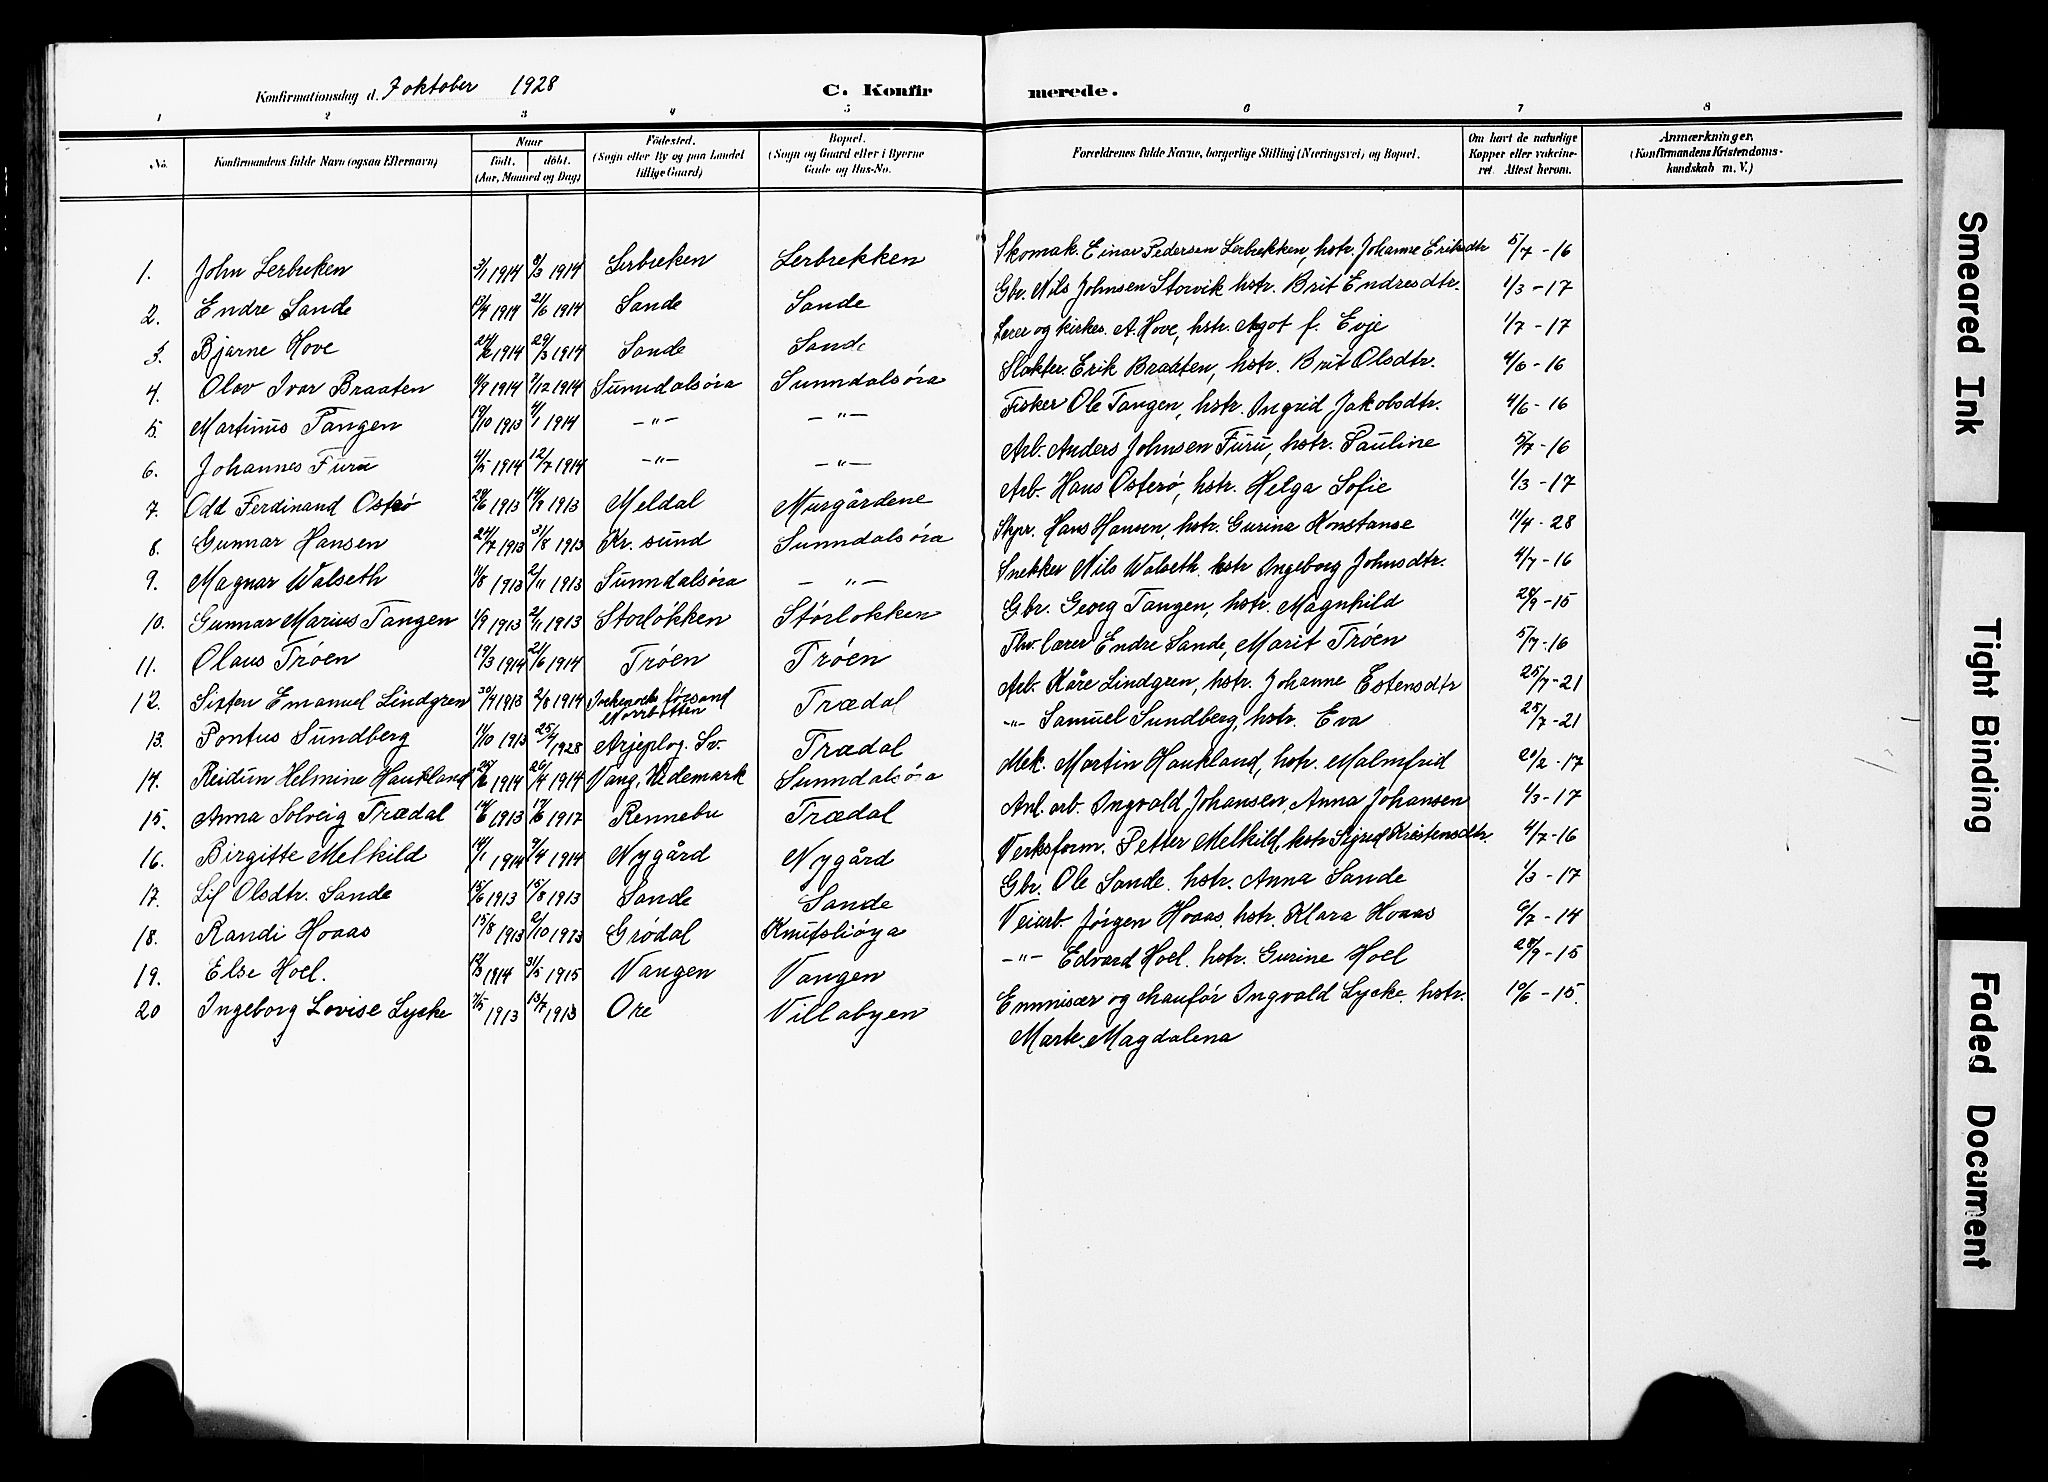 Konfirmationsdag d. 7 oktober 1928
C. Konfirmerede.
1 2 3 4 5 6 7 8
No. Konfirmandens fulde Navn (ogsaa Efternavn) Naar født, døbt. (Aar, Maaned og Dag) Fødested. (Sogn eller By og paa Landet tillige Gaard) Bopæl. (Sogn og Gaard eller i Byerne Gade og Hus-No. Forældrenes fulde Navne, borgerlige Stilling (Næringsvei) og Bopæl. Om havt de naturlige Kopper eller vakcineret. Attest herom. Anmærkninger. (Konfirmandens Kristendomskundskab m. V.)
1. John Lerbrekken 3/1 1914 8/3 1914 Lerbrekken Lerbrekken Skomak. Einar Pedersen Lerbrekken, hstr. Johanne Eriksdtr 5/7-16
2. Endre Sande 1914 21/6 1914 Sande Sande Gbr. Nils Johnsen Storvik hstr. Brit Endresdtr. 1/3-17
3. Bjarne Hove 24/2 1914 29/3 1914 Sande Sande Lærer og kirkes. A. Hove, hstr. Agot f. Evje 1/7-17
4. Olav Ivar Braaten 1/9 1914 /12 1914 Sunndalsøra Sunndalsøra Slakter Erik Braaten, hstr. Brit Olsdtr. 4/6-16
5. Martinus Tangen 19/10 1913 4/1 1914 -"- -"- Fisker Ole Tangen, hstr. Ingrid Jakobsdtr. 4/6-16
6. Johannes Furu 4/5 1914 12/7 1914 -"- -"- Arb. Anders Johnsen Furu, hstr. Pauline 5/7-16
7. Odd Ferdinand Osterø 28/6 1913 14/9 1913 Meldal Musgårdene Arb. Hans Osterø, hstr. Helga Sofie 1/3-17
8. Gunnar Hansen 24/7 1913 31/8 1913 Kr. sund Sunndalsøra Styr. Hans Hansen, hstr. Gurina Konstanse 11/4-28
9. Magnar Walseth 11/8 1913 2/11 1913 Sunndalsøra -"- Snekker Nils Walseth. hstr Ingeborg Johnsdtr. 4/7-16
10. Gunnar Marius Tangen 1/9 1913 2/11 1913 Storløkken Storløkken Gbr. Georg Tangen, hstr. Magnhild 28/9-15
11. Olaus Trøen 19/3 1914 21/6 1914 Trøen Trøen Thv. lærer Endre Sande, Marit Trøen 5/7-16
12. Sixten Emanuel Lindgren 30/4 1913 2/8 1914 Norrbotten Trædal Arb. Kåre Lindgren, hstr. Johanne Estensdtr 25/7-21
13. Pontus Sundberg 11/10 1913 25/4 1928 Arjeplog. Sv. Trædal -"- Samuel Sundberg, hstr. Eva 25/7-21
14. Reidun Helmine Haukland 27/2 1914 26/4 1914 Vang, Hedemark Sunndalsøra Mek. Martin Haukland, hstr. Malmfrid 20/2-17
15. Anna Solveig Trædal 14/6 1913 17/6 1917 Rennebu Trædal Anl. arb. Ingvald Johansen, Anna Johansen 1/3-17
16. Birgitte Melkild 14/1 1914 9/4 1914 Nygård Nygård Verksform. Petter Melkild, hstr Sigrid Kristensdtr. 4/7-16
17. Lif Olsdtr. Sande 15/6 1913 15/8 1913 Sande Sande Gbr. Ole Sande. hstr. Anna Sande 1/3-17
18. Randi Hoaas 15/8 1913 2/10 1913 Grødal Knutsliøya Veiarb. Jørgen Hoaas, hstr. Klara Hoaas 6/7-14
19. Else Hoel. 12/3 1914 31/5 1915 Vangen Vangen -"- Edvard Hoel. hstr. Gurine Hoel 28/9-15
20 Ingeborg Lovise Lycke 7/5 1913 13/7 1913 Ore Villabyen Emmisær og chaufør Ingvald Lycke. hstr. 10/6-15.
Marte Magdalena
Smeared Ink
Tight Binding
Faded Document